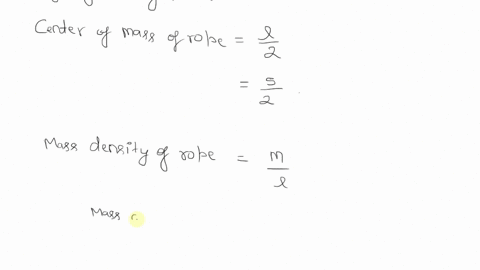 Center of mass of rope = l/2
= 5/2
Mass density of rope = m/l
Mass